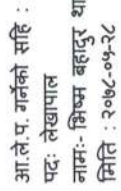 आ.ले.प. गर्नेको सहि :
पदः लेखापाल
नामः- भिष्म बहादुर था
मिति : २०७८-०५-२८